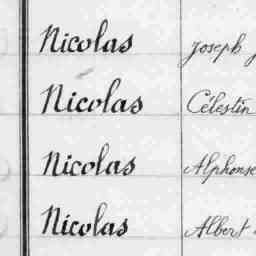 Nicolas Joseph
Nicolas Célestin
Nicolas Alphonse
Nicolas Albert